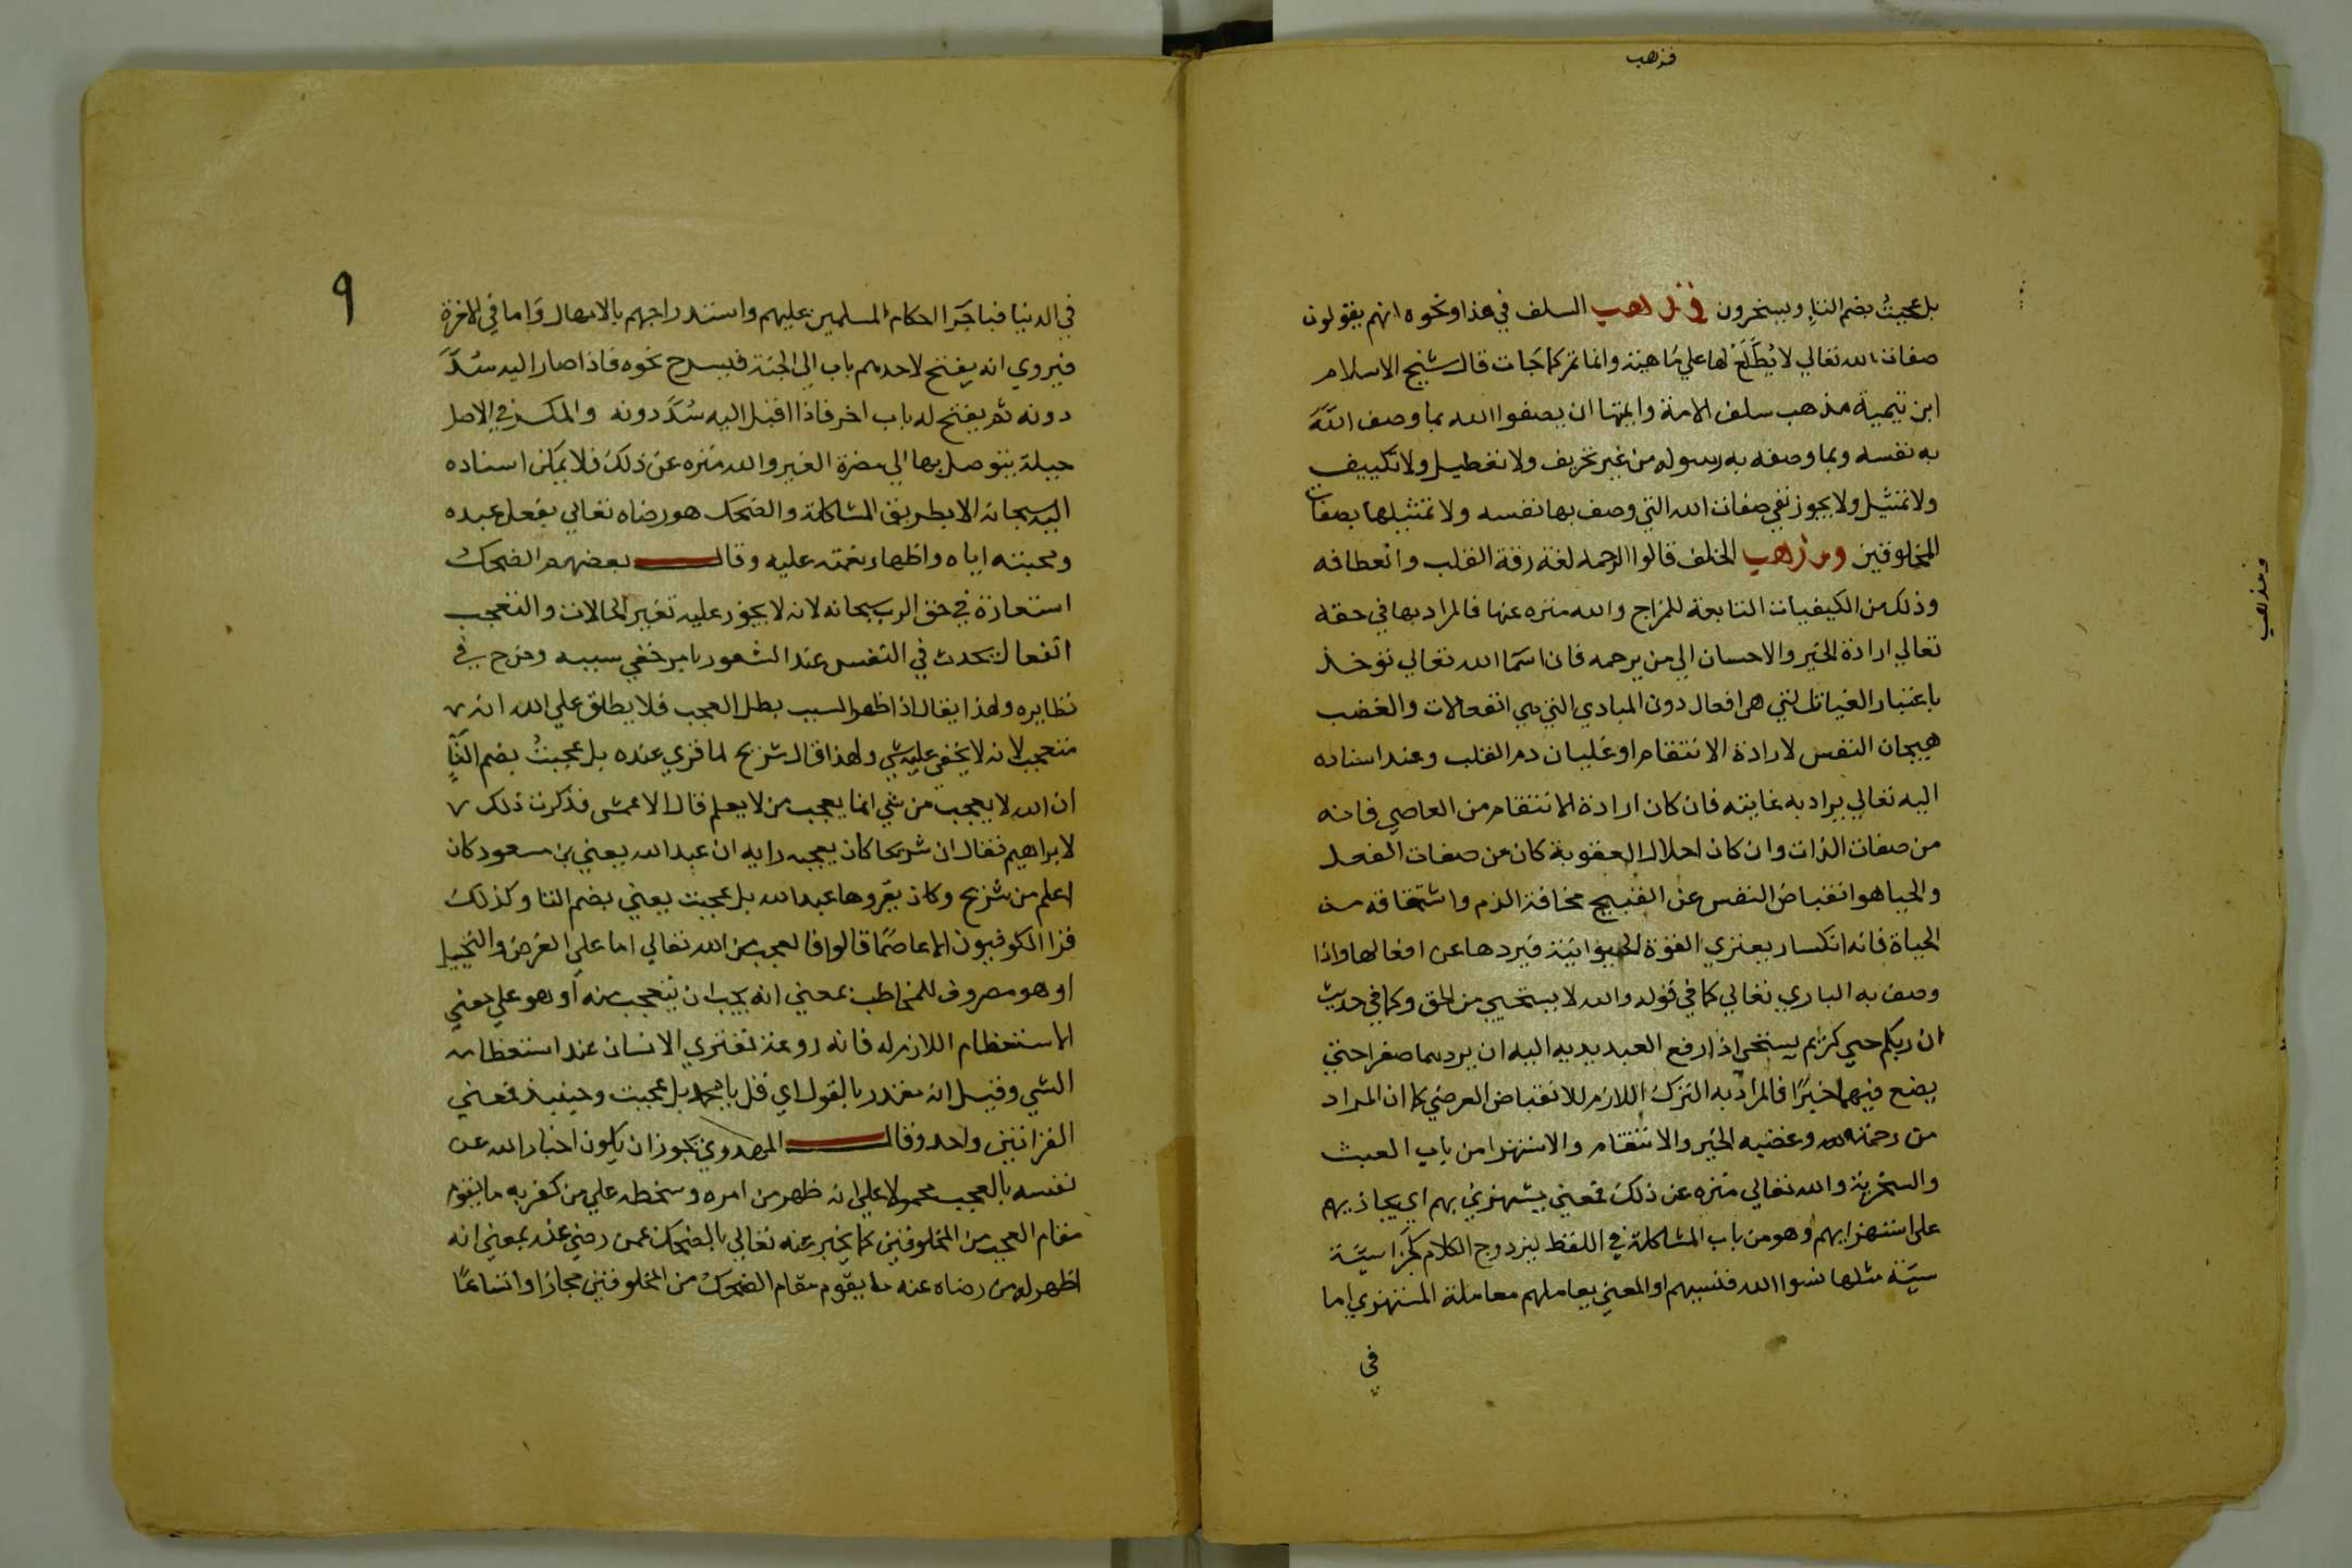 فذهب
بل عجبتُ بضم التاء ويسخرون فذهب السلف في هذا ونحوه انهم يقولون
صفات الله تعالي لا يُطَّلَعُ لها علي ماهية وانما تمر كما جات قال شيخ الاسلام
ابن تيمية مذهب سلف الامة وايمتها ان يصفوا الله بما وصف اللَّهُ
به نفسه وبما وصفه به رسوله من غير تحريف ولا تعطيل ولا تكييف
ولا تمثيل ولا يجوز نفي صفات الله التي وصف بها نفسه ولا تمثيلها بصفات
المخلوقين ومذهب الخلف قالوا الرحمه لغة رقة القلب وانعطافه
وذلك من الكيفيات التابعة للمزاج والله منزه عنها فالمراد بها في حقه
تعالي ارادة الخير والاحسان الي من يرحمه فان اسما الله تعالي توخذ
باعتبار الغيات التي هي افعال دون المبادي التي هي انفعالات والغضب
هيجان النفس لارادة الانتقام او غليان دم القلب وعند اسناده
اليه تعالي يراد به غايته فان كان ارادة الانتقام من العاصي فانه
من صفات الذات وان كان احلال العقوبة كان من صفات الفعل
والحيا هو انقباض النفس عن القبيح مخافة الذم واشتقاقه من
الحياة فانه انكسار يعتري القوة الحيوانية فيردها عن افعالها واذا
وصف به الباري تعالي كما في قوله والله لا يستحيي من الحق وكما في حديث
ان ربكم حيي كريم يستحي اذا رفع العبد يديه اليه ان يردهما صفرا حتي
يضع فيهما خيرًا فالمراد به الترك اللازم للانقباض العرضي كما ان المراد
من رحمته وغضبه الخير والانتقام والاستهزا من باب العبث
والسخرية والله تعالي منزه عن ذلك فمعني يستهزي بهم اي يجازيهم
علي استهزايهم وهو من باب المشاكلة في اللفظ ليزدوج الكلام كجزا سيّة
سيّة مثلها نسوا الله فنسيهم او المعني يعاملهم معاملة المستهزي اما
في
ومذهب
٩
في الدنيا فباجرا احكام المسلمين عليهم واستدراجهم بالامهال واما في الاخرة
فيروي انه يفتح لاحدهم باب الي الجنة فيسرع نحوه فاذا صار اليه سُدَّ
دونه ثم يفتح له باب اخر فاذا اقبل اليه سُدَّ دونه والمكر في الاصل
حيلة يتوصل بها الي مضرة الغير والله منزه عن ذلك فلا يمكن اسناده
اليه سبحانه الا بطريق المشاكلة والضحك هو رضاه تعالي بفعل عبده
ومحبته اياه واظهار نعمته عليه وقال بعضهم الضحك
استعارة في حق الرب سبحانه لانه لا يجوز عليه تغير الحالات والتعجب
انفعال يحدث في النفس عند الشعور بامر خفي سببه وخرج في
نظايره ولهذا يقال اذا ظهر السبب بطل العجب فلا يطلق علي الله انه
متعجب لانه لا يخفي عليه شي ولهذا قال شريح لما قري عنده بل عجبتُ بضم التاءِ
ان الله لا يعجب من شي انما يعجب من لا يعلم قال الاعمش فذكرت ذلك
لابراهيم فقال ان شريحا كان يعجبه رايه ان عبد الله يعني بن مسعود كان
اعلم من شريح وكان يقروها عبد الله بل عجبت يعني بضم التا وكذلك
قرا الكوفيون الا عاصمًا قالوا فالعجب من الله تعالي اما علي الفرض والتخييل
او هو مصروف للمخاطب بمعني انه يجب ان يتعجب منه أو هو علي معني
الاستعظام اللازم له فانه روعة تعتري الانسان عند استعظامه
الشي وقيل انه مقدر بالقول اي قل يا محمد بل عجبت وحينيذ فمعني
القراتين واحد وقال المهدوي يجوز ان يكون اخبار الله عن
نفسه بالعجب محمولا علي انه ظهر من امره وسخطه علي من كفر به ما يقوم
مقام العجب من المخلوقين كما يخبر عنه تعالي بالضحك عمن رضي عنه بمعني انه
اظهر له من رضاه عنه ما يقوم مقام الضحك من المخلوقين مجازا واتساعًا